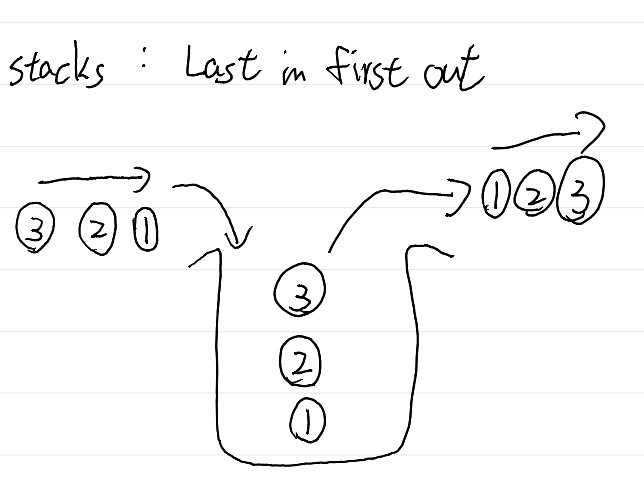 stacks : Last in first out
3 2 1
1 2 3
3
2
1